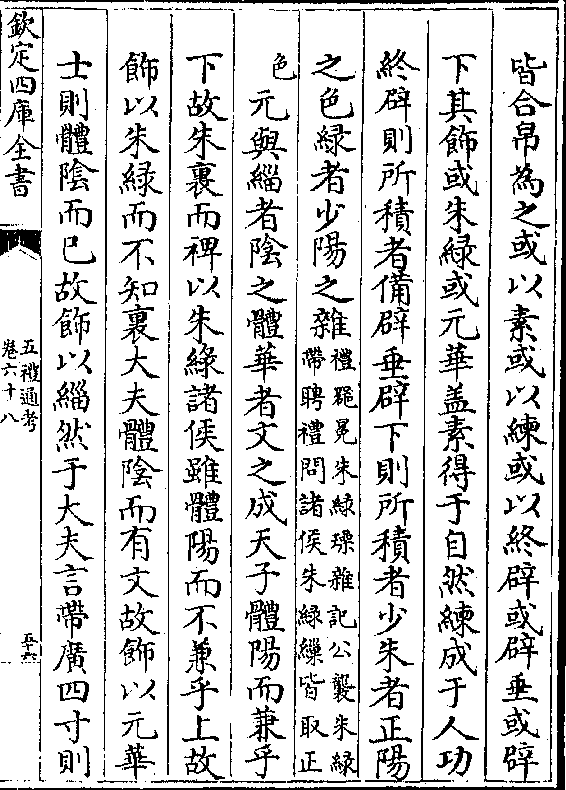 皆合帛為之或以素或以練或以終辟或辟垂或辟
下其飾或朱緑或元華盖素得于自然練成于人功
終辟則所積者備辟垂辟下則所積者少朱者正陽
之色緑者少陽之雜
禮器冕朱緑璪雜記公襲朱緑
帶聘禮問諸侯朱緑繅皆取正
色
元與緇者陰之體華者文之成天子體陽而兼乎
下故朱裏而裨以朱緑諸侯雖體陽而不兼乎上故
飾以朱緑而不知裏大夫體陰而有文故飾以元華
士則體陰而已故飾以緇然于大夫言帶廣四寸則
欽定四庫全書
五禮通考
卷六十八